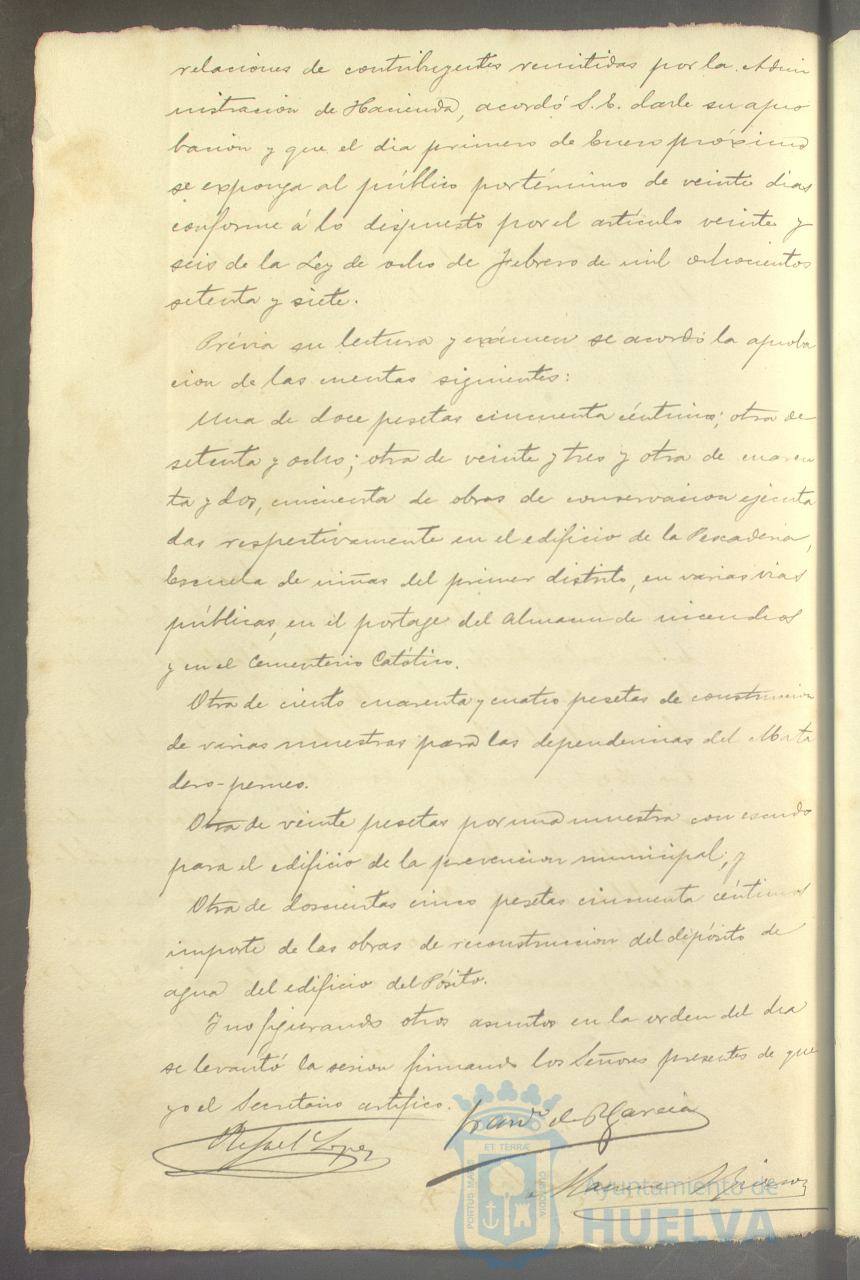 relaciones de contribuyentes remitidas por la Admi
nistracion de Hacienda, acordó S. E. darle su apro
bacion y que el dia primero de Enero próximo
se exponga al público por término de veinte dias
conforme á lo dispuesto por el artículo veinte y
seis de la Ley de ocho de Febrero de mil ochocientos
setenta y siete.
Prévia su lectura y exámen se acordó la aproba
cion de las cuentas siguientes:
Una de doce pesetas cincuenta céntimos; otra de
setenta y ocho; otra de veinte y tres y otra de cuaren
ta y dos, cincuenta de obras de conservacion ejecuta
das respectivamente en el edificio de la Pescaderia,
Escuela de niñas del primer distrito, en varias vias
públicas, en el portage del Almacen de incendios
y en el Cementerio Católico.
Otra de ciento cuarenta y cuatro pesetas de construccion
de varias muestras para las dependencias del Mata
dero
Otra de veinte pesetas por una muestra con escudo
para el edificio de la prevencion municipal; y
Otra de doscientas cinco pesetas cincuenta céntimos
importe de las obras de reconstruccion del depósito de
agua del edificio del Pósito.
Y no figurando otros asuntos en la orden del dia
se levantó la sesion firmando los Señores presentes de que
yo el Secretario certifico.
Franco de P. Garcia
Rafael Lopez
ET TERRÆ
PORTUS MARIS
CUSTODIA
Ayuntamiento de
HUELVA